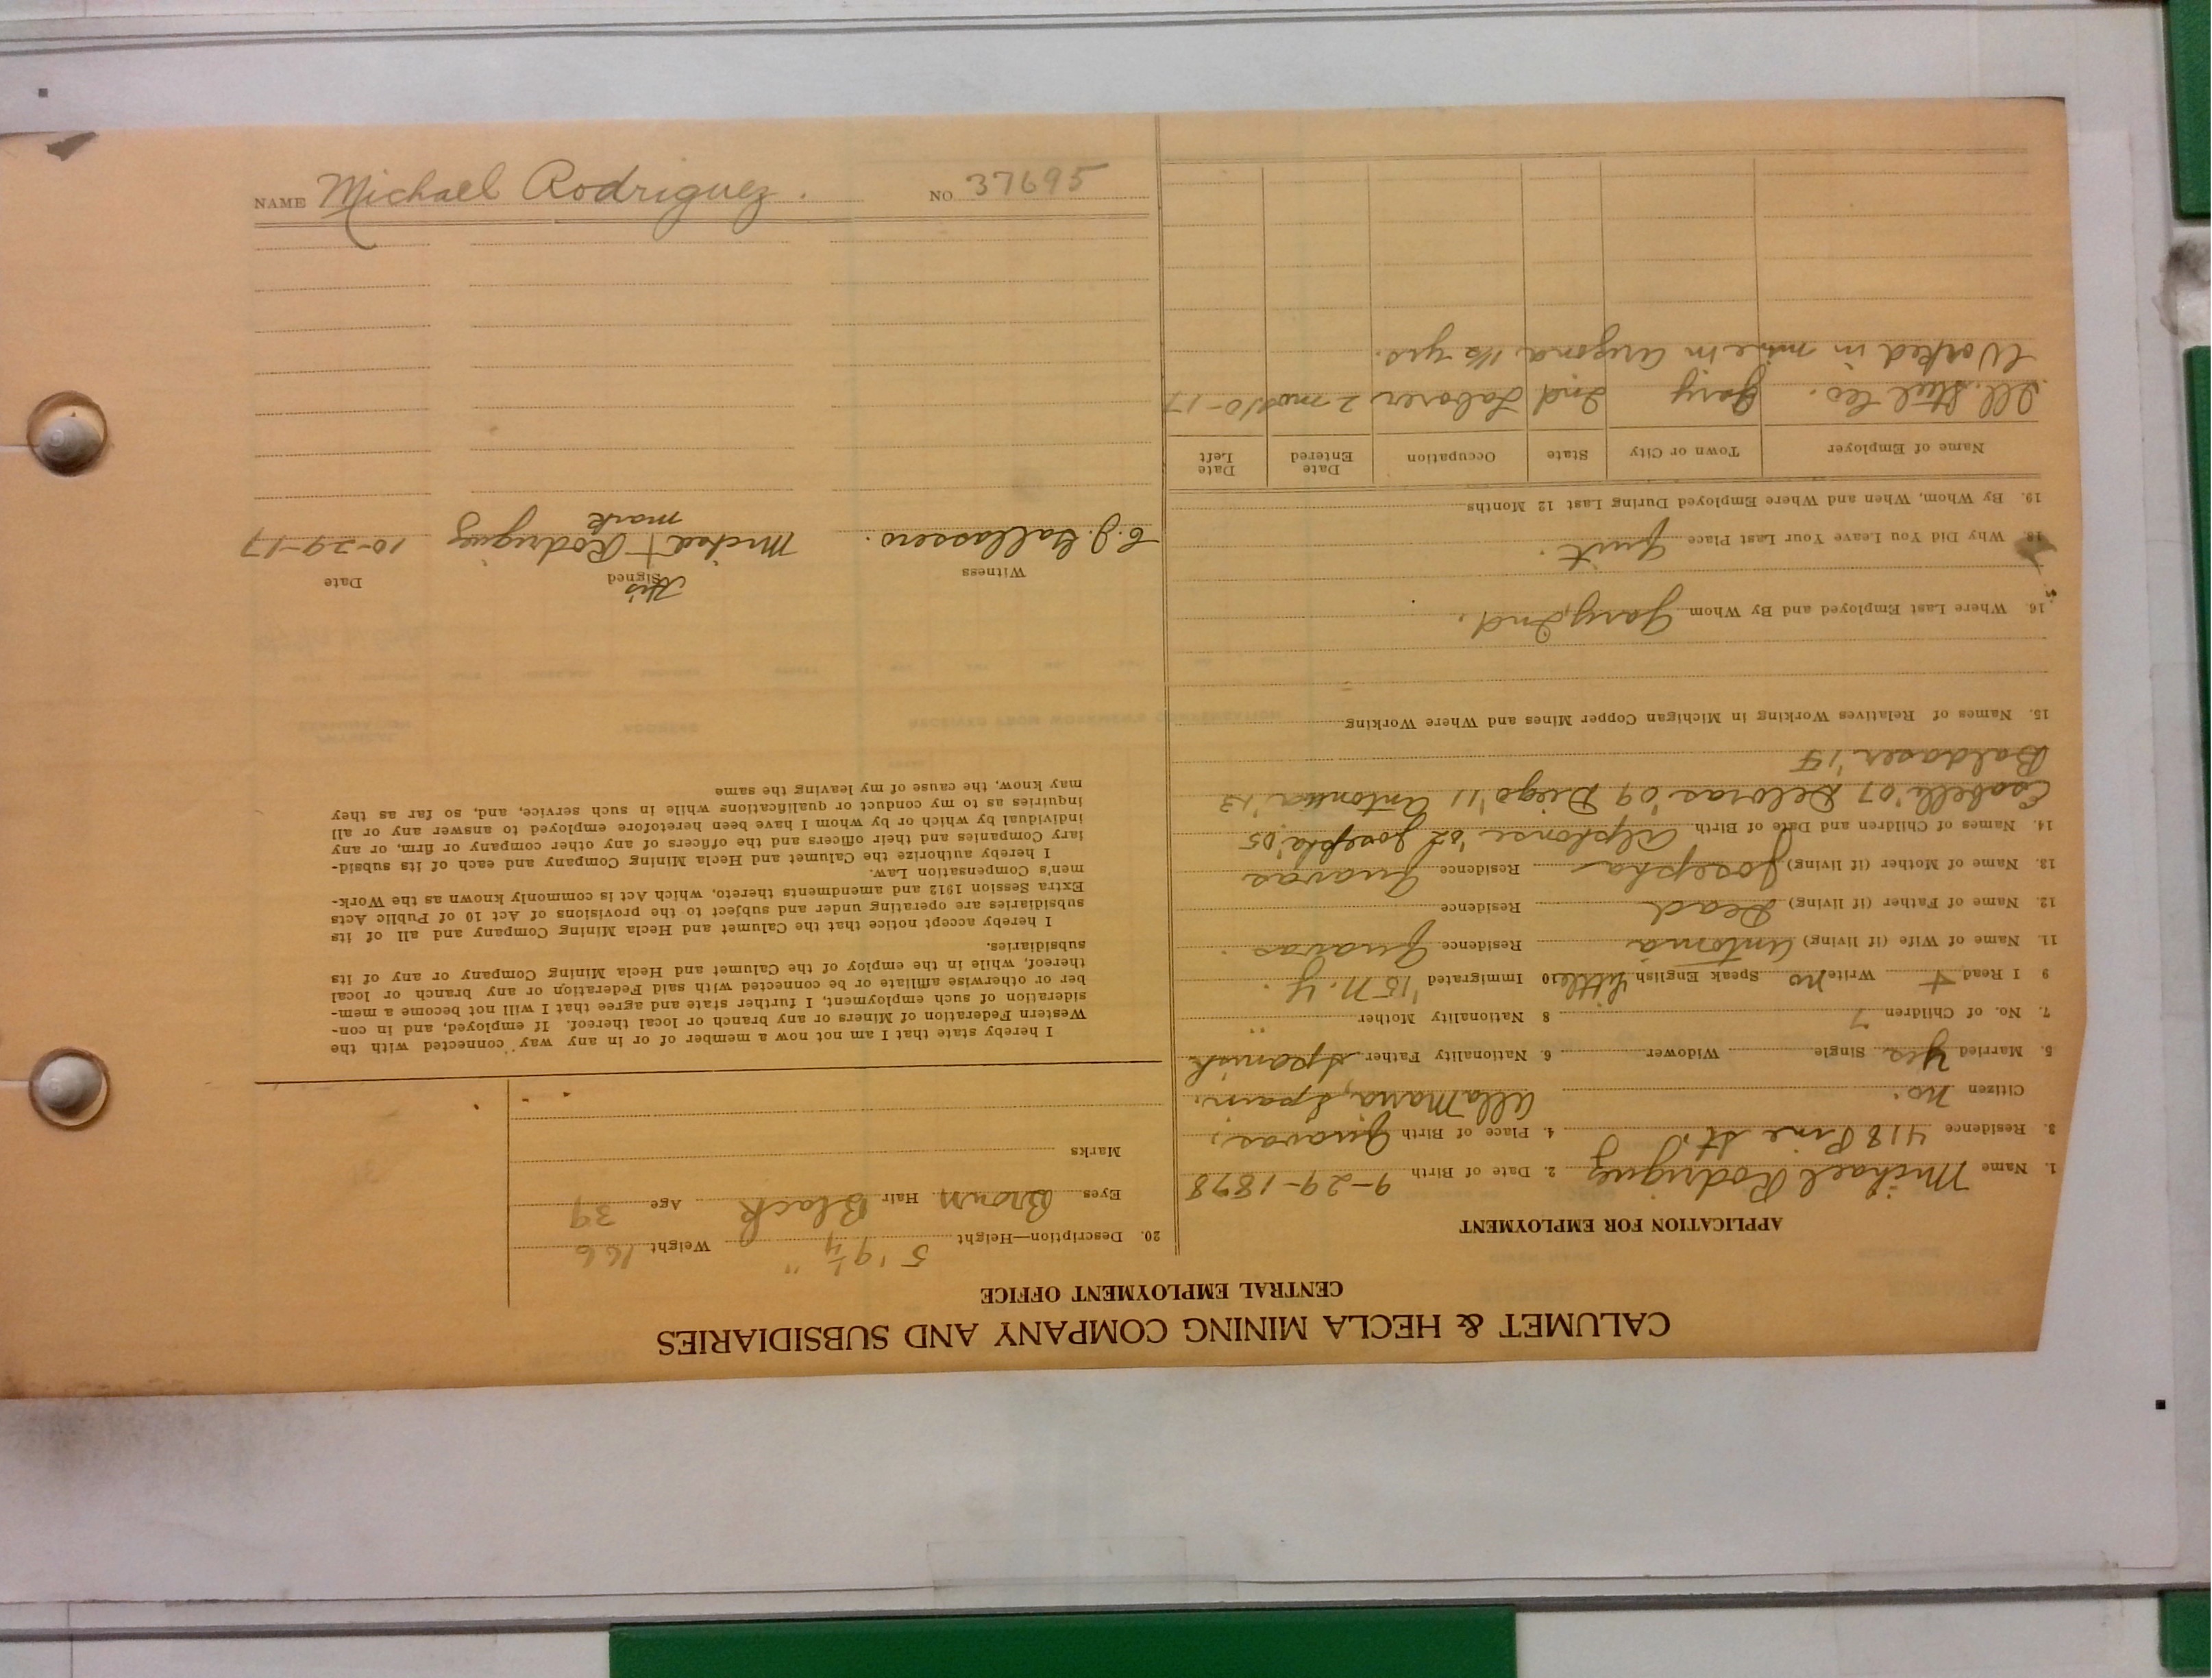 CALUMET & HECLA MINING COMPANY AND SUBSIDIARIES
CENTRAL EMPLOYMENT OFFICE
APPLICATION FOR EMPLOYMENT
1. Name Michael Rodriguez 2. Date of Birth 9-29-1878
3. Residence 418 Pine St. 4. Place of Birth Guavas,
Citizen no. Alla Maria, Spain.
5. Married yes Single Widower 6. Nationality Father Spanish
7. No. of Children 7 8 Nationality Mother "
9 I Read + Write no Speak English little 10 Immigrated '15 N.Y.
11. Name of Wife (if living) Antonia Residence Guavas.
12. Name of Father (if living) Dead Residence
13. Name of Mother (if living) Josepha Residence Guavas
14. Names of Children and Date of Birth Alphonse '02 Josepha '05
Esabell '07 Deloras '09 Diego '11 Antonia '13
Baldaser '15
15. Names of Relatives Working in Michigan Copper Mines and Where Working
16. Where Last Employed and By Whom Gary, Ind.
18. Why Did You Leave Your Last Place Quit.
19. By Whom, When and Where Employed During Last 12 Months
Name of Employer Town or City State Occupation Date Entered Date Left
Ill. Steel Co. Gary Ind Laborer 2 mos 10-17
Worked in mine in Arizona 1½ yrs.
20. Description—Height 5' 9¼" Weight 166
Eyes Brown Hair Black Age 39
Marks
I hereby state that I am not now a member of or in any way connected with the
Western Federation of Miners or any branch or local thereof. If employed, and in con-
sideration of such employment, I further state and agree that I will not become a mem-
ber or otherwise affiliate or be connected with said Federation or any branch or local
thereof, while in the employ of the Calumet and Hecla Mining Company or any of its
subsidiaries.
I hereby accept notice that the Calumet and Hecla Mining Company and all of its
subsidiaries are operating under and subject to the provisions of Act 10 of Public Acts
Extra Session 1912 and amendments thereto, which Act is commonly known as the Work-
men's Compensation Law.
I hereby authorize the Calumet and Hecla Mining Company and each of its subsid-
iary Companies and their officers and the officers of any other company or firm, or any
individual by which or by whom I have been heretofore employed to answer any or all
inquiries as to my conduct or qualifications while in such service, and, so far as they
may know, the cause of my leaving the same
Witness Signed Date
His
Micheal + Rodriguez 10-29-17
mark
NAME Michael Rodriguez. NO 37695